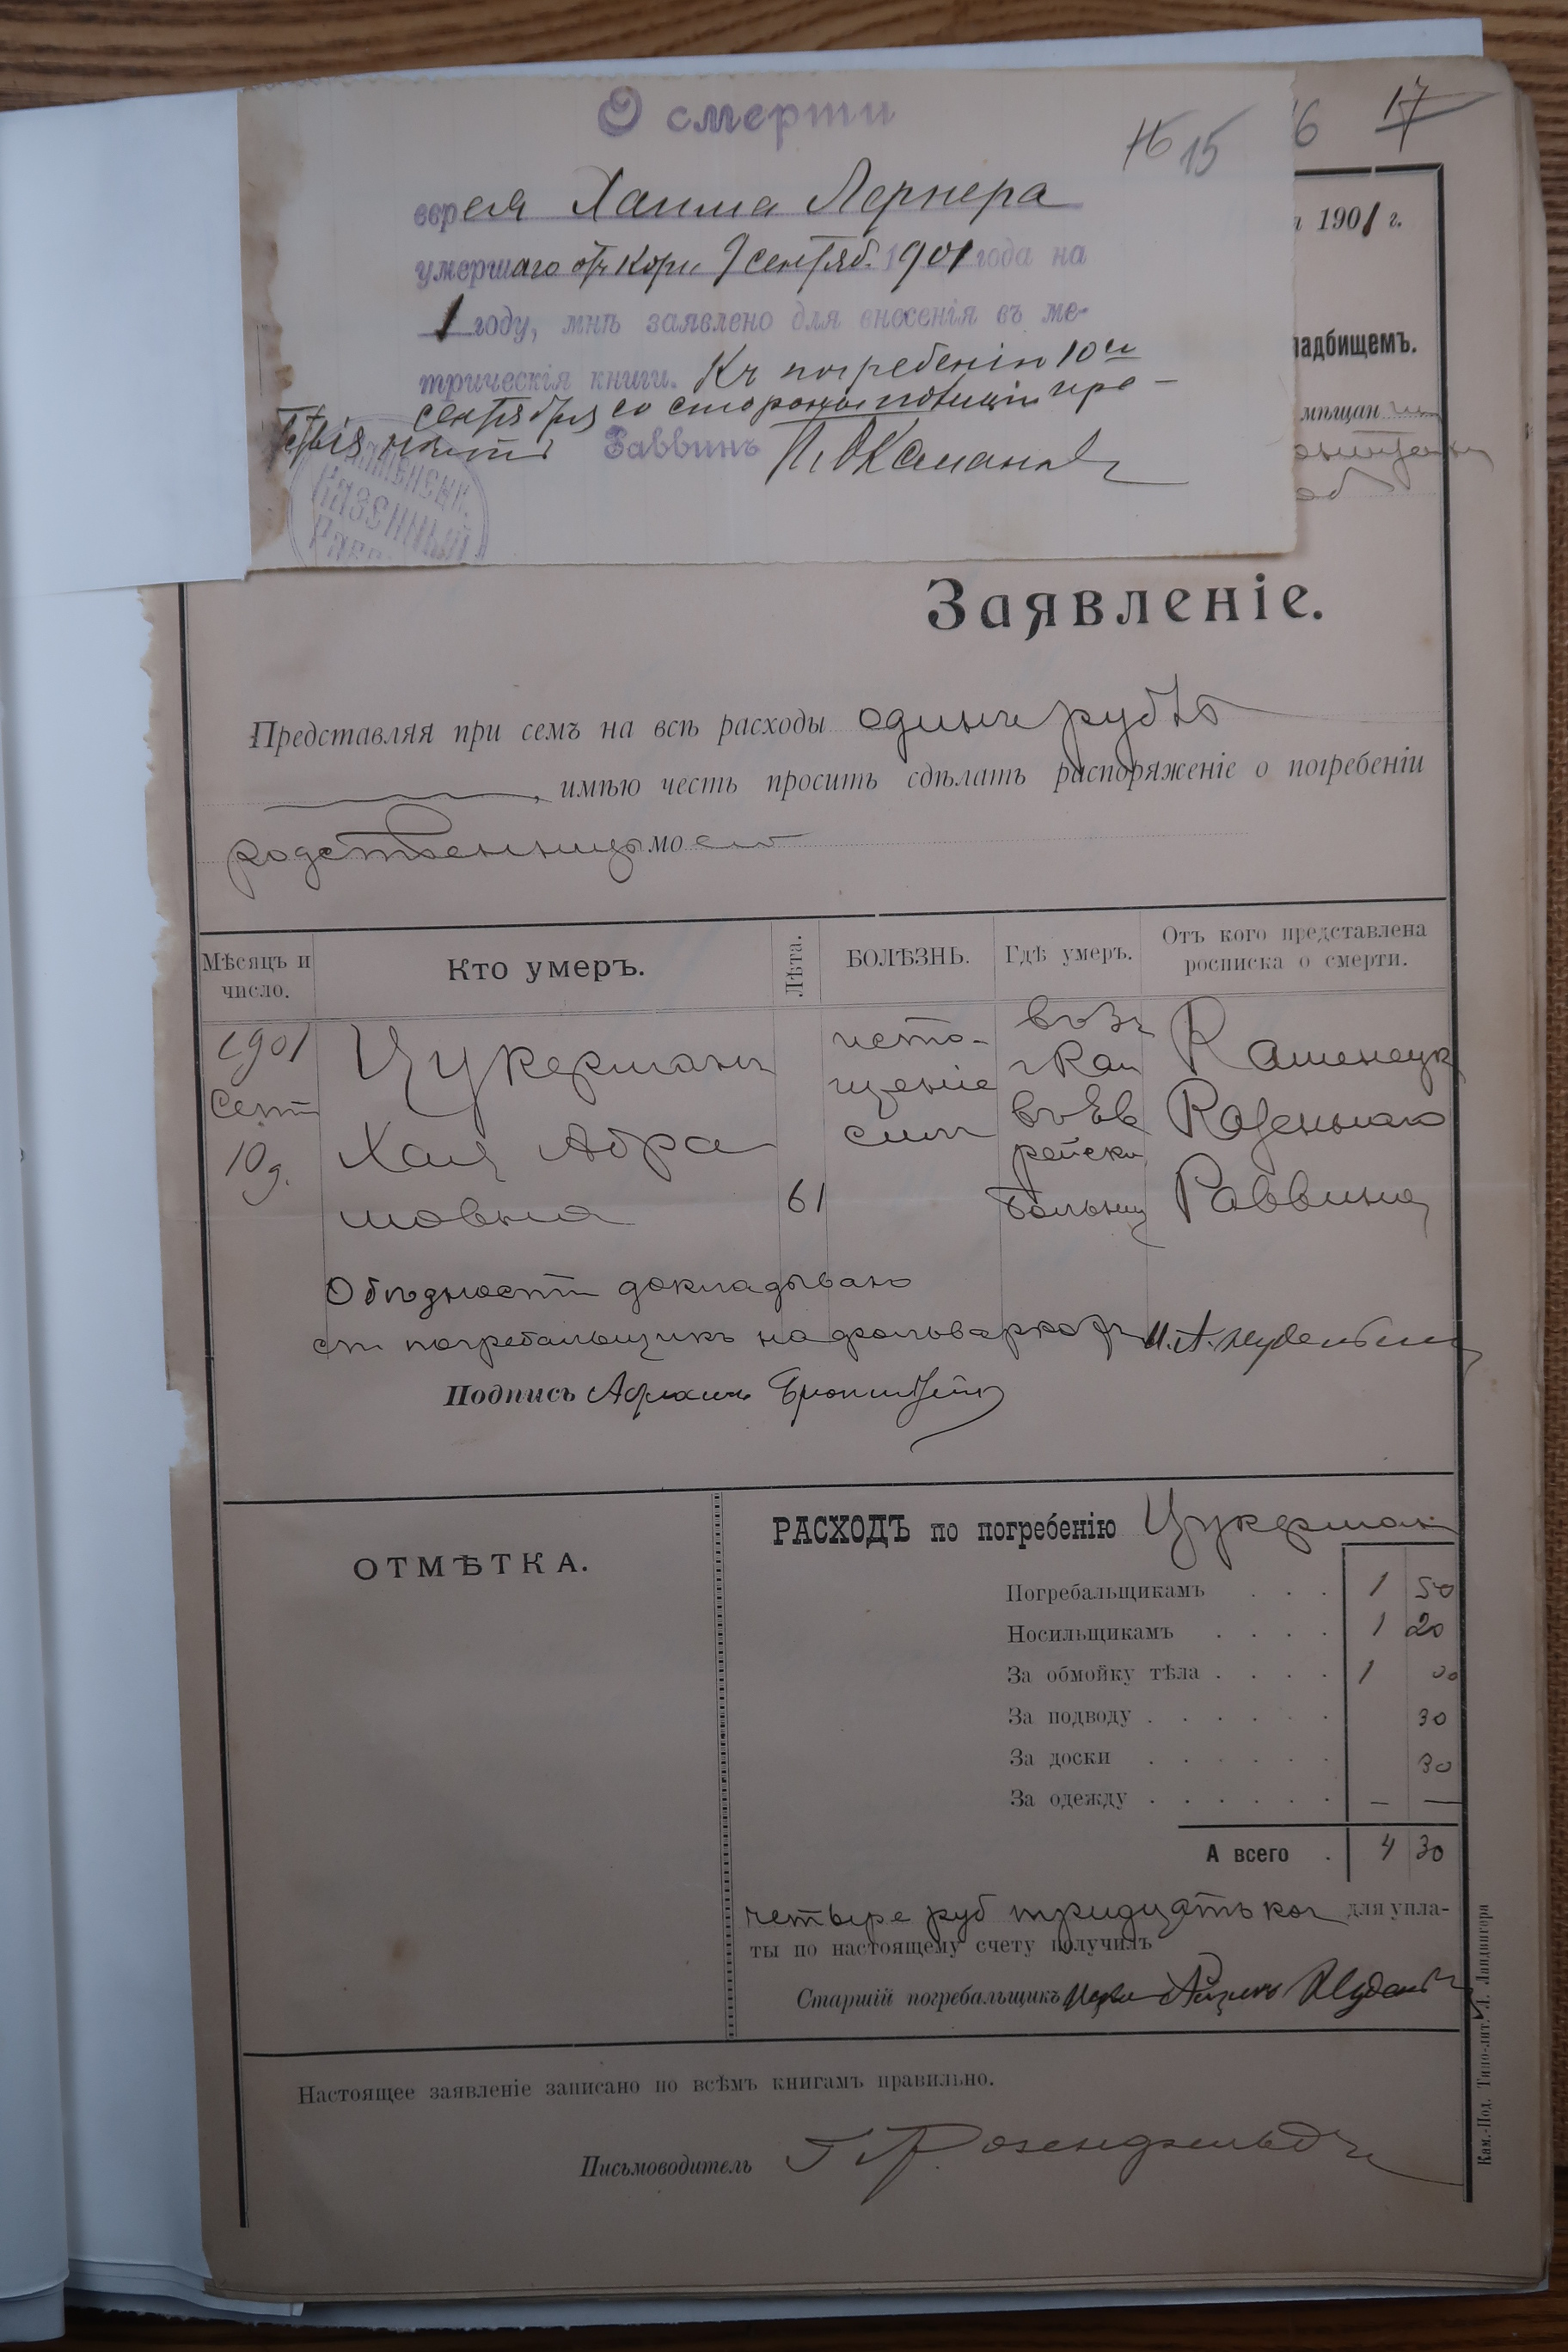 О смерти
16 15
17
еврея Хаима Лернера
умершаго отъ кори 9 сентяб. 1901 года на
1 году, мнѣ заявлено для внесенія въ ме-
трическія книги. Къ погребенію 10го
сентября со стороны полиціи пре-
Раввинъ
КАЗЕННЫЙ
1901 г.
ладбищемъ.
мѣщан
Заявленіе.
Представляя при семъ на всѣ расходы одинъ рубль
, имѣю честь просить сдѣлать распоряженіе о погребеніи
родственницы моей
Мѣсяцъ и число.
Кто умеръ.
Лѣта.
БОЛѢЗНЬ.
Гдѣ умеръ.
Отъ кого представлена росписка о смерти.
1901
Сент
10 д.
Цукерманъ
Хая Абра
мовна
61
исто-
щеніе
силъ
въ Ев
рейск
больниц
Каменецк
Казеннаго
Раввина
О бѣдности докладывано
ст. погребальщикъ
Подпись
ОТМѢТКА.
РАСХОДЪ по погребенію Цукерман
Погребальщикамъ . . . 1 50
Носильщикамъ . . . . 1 20
За обмойку тѣла . . . . 1 00
За подводу . . . . . . 30
За доски . . . . . . 30
За одежду . . . . . . — —
А всего . 4 30
четыре руб тридцать коп для упла-
ты по настоящему счету получилъ
Старшій погребальщикъ
Настоящее заявленіе записано по всѣмъ книгамъ правильно.
Письмоводитель Г. Розенфельдъ
Кам.-Под. Типо-лит. Л. Ландвигера